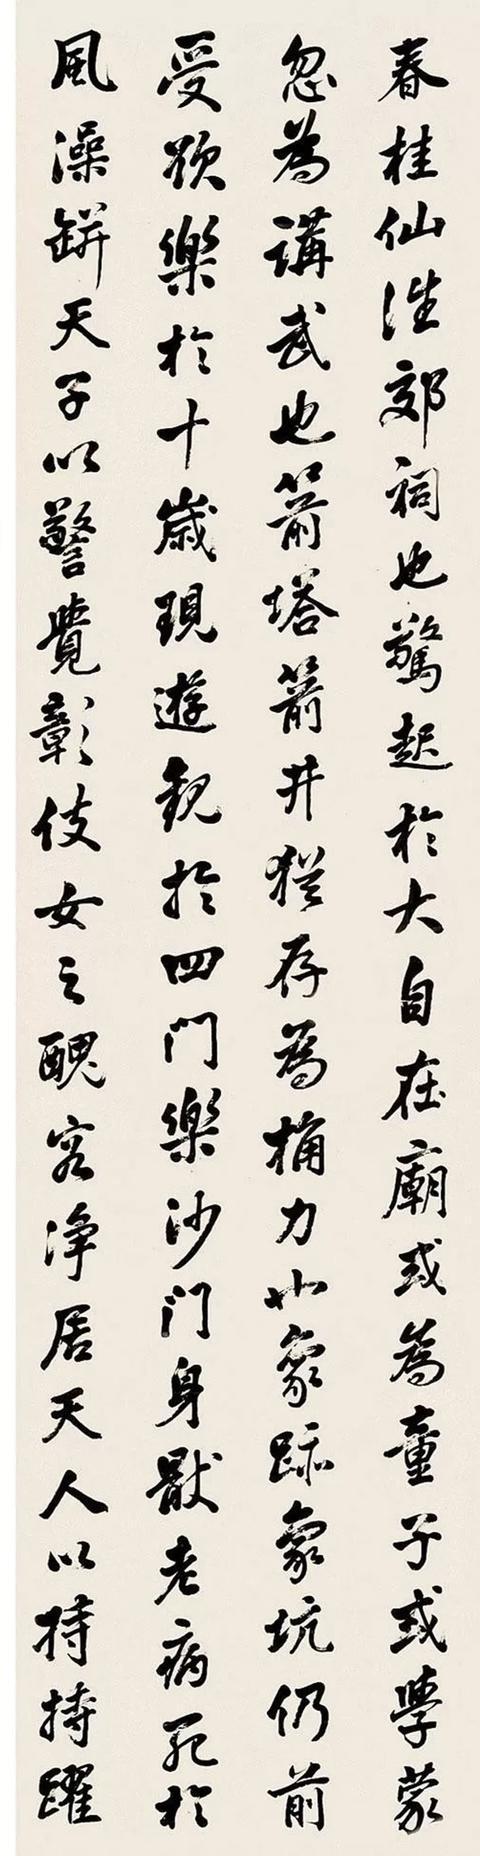 春桂仙往郊祠也驚起於大自在廟或為童子或學蒙
忽為講武也箭塔箭井猶存為捔力也象跡象坑仍前
受欲樂於十歲現遊觀於四門樂沙門身厭老病死於
風澡缾天子以警覺彰伎女之醜容淨居天人以持持躍